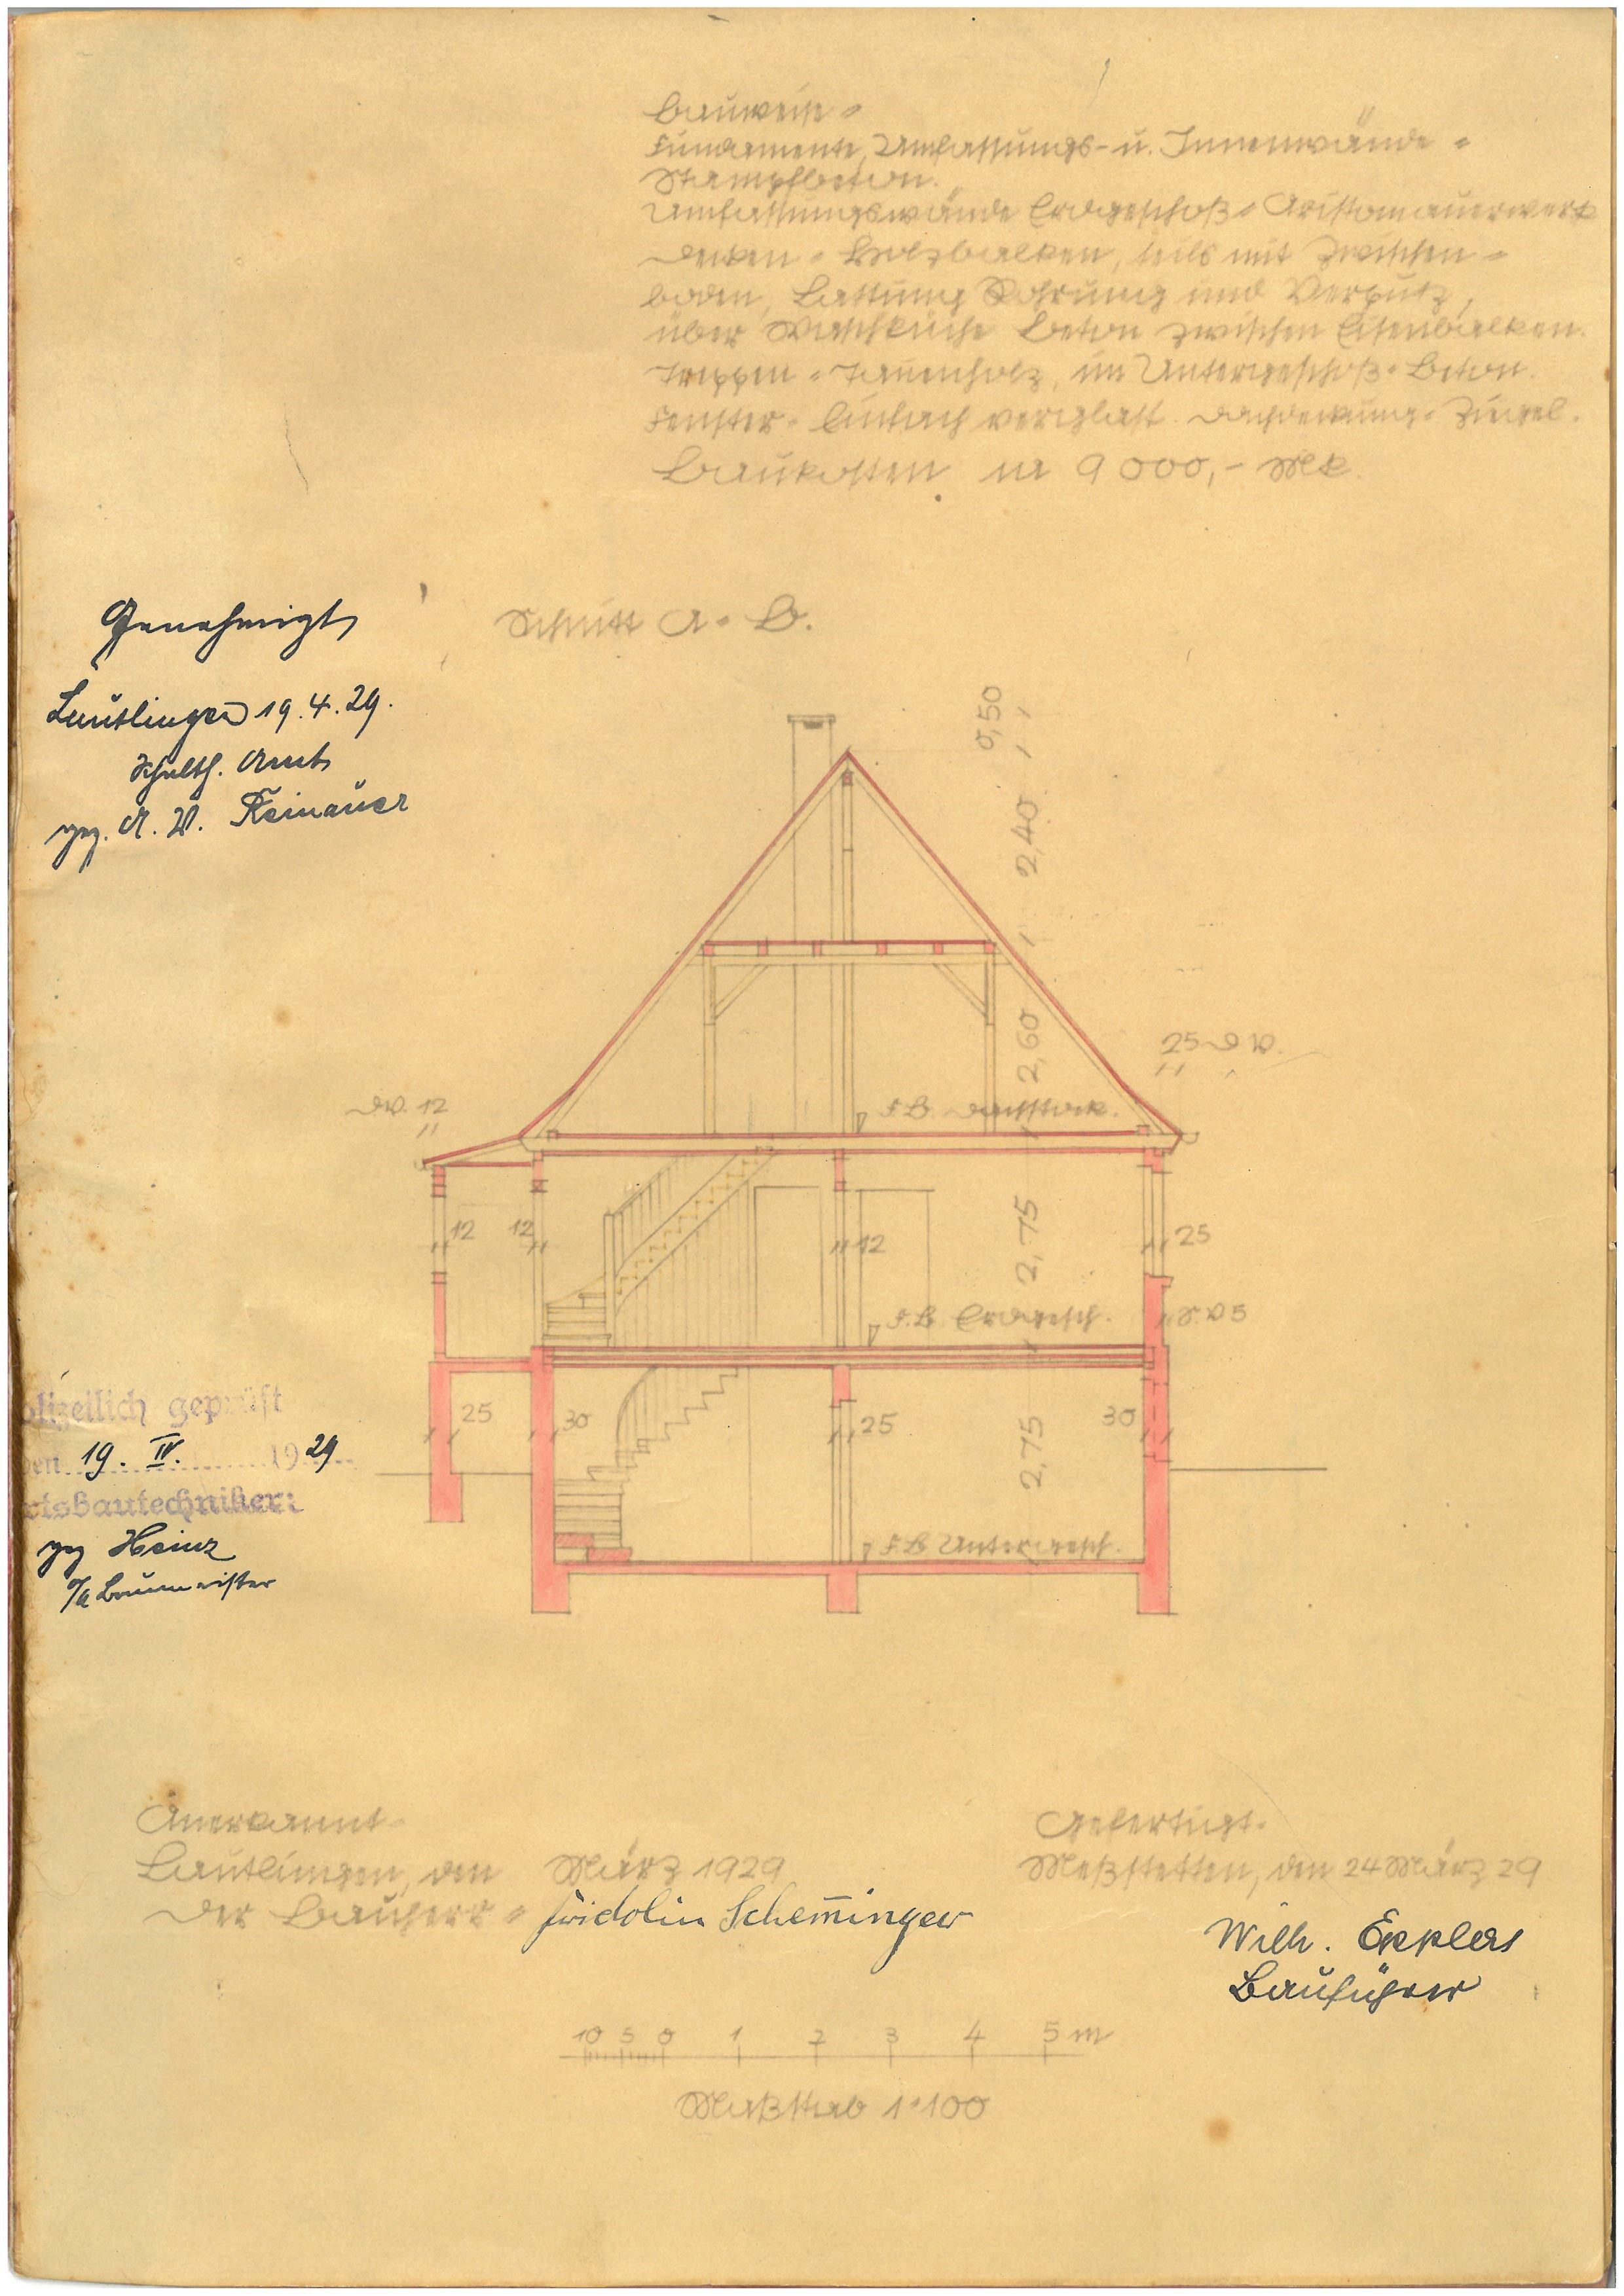 Bauweise =
Fundamente, Umfassungs- u. Innenwände =
Stampfbeton.
Umfassungswände Erdgeschoß = Aristomauerwerk
Decken = Holzbalken, teils mit Zwischen =
boden, Lattung Rohrung und Verputz,
über Waschküche Beton zwischen Eisenbalken.
Treppen = Tannenholz, im Untergeschoß = Beton.
Fenster = Einfach verglast. Dachdeckung = Ziegel.
Baukosten 9 000,- Mk.
Genehmigt
Lautlingen 19.4.29.
Schulth. Amt
gez. A. V.
Schnitt A = B.
0,50
2,40
2,60
25 D W.
DW. 12
F.B. Dachstock.
12
12
12
2,75
25
F.B. Erdgesch.
25
30
25
2,75
30
F.B. Untergesch.
olizeilich geprüft
den 19. IV. 1929
rtsbautechniker:
gez Heinz
O/A Baumeister
Anerkannt =
Lautlingen, den März 1929
Der Bauherr = Fridolin Scheminger
Gefertigt =
Meßstetten, den 24 März 29
Wilh. Eppler
Bauführer
10 5 0 1 2 3 4 5 m
Maßstab 1:100